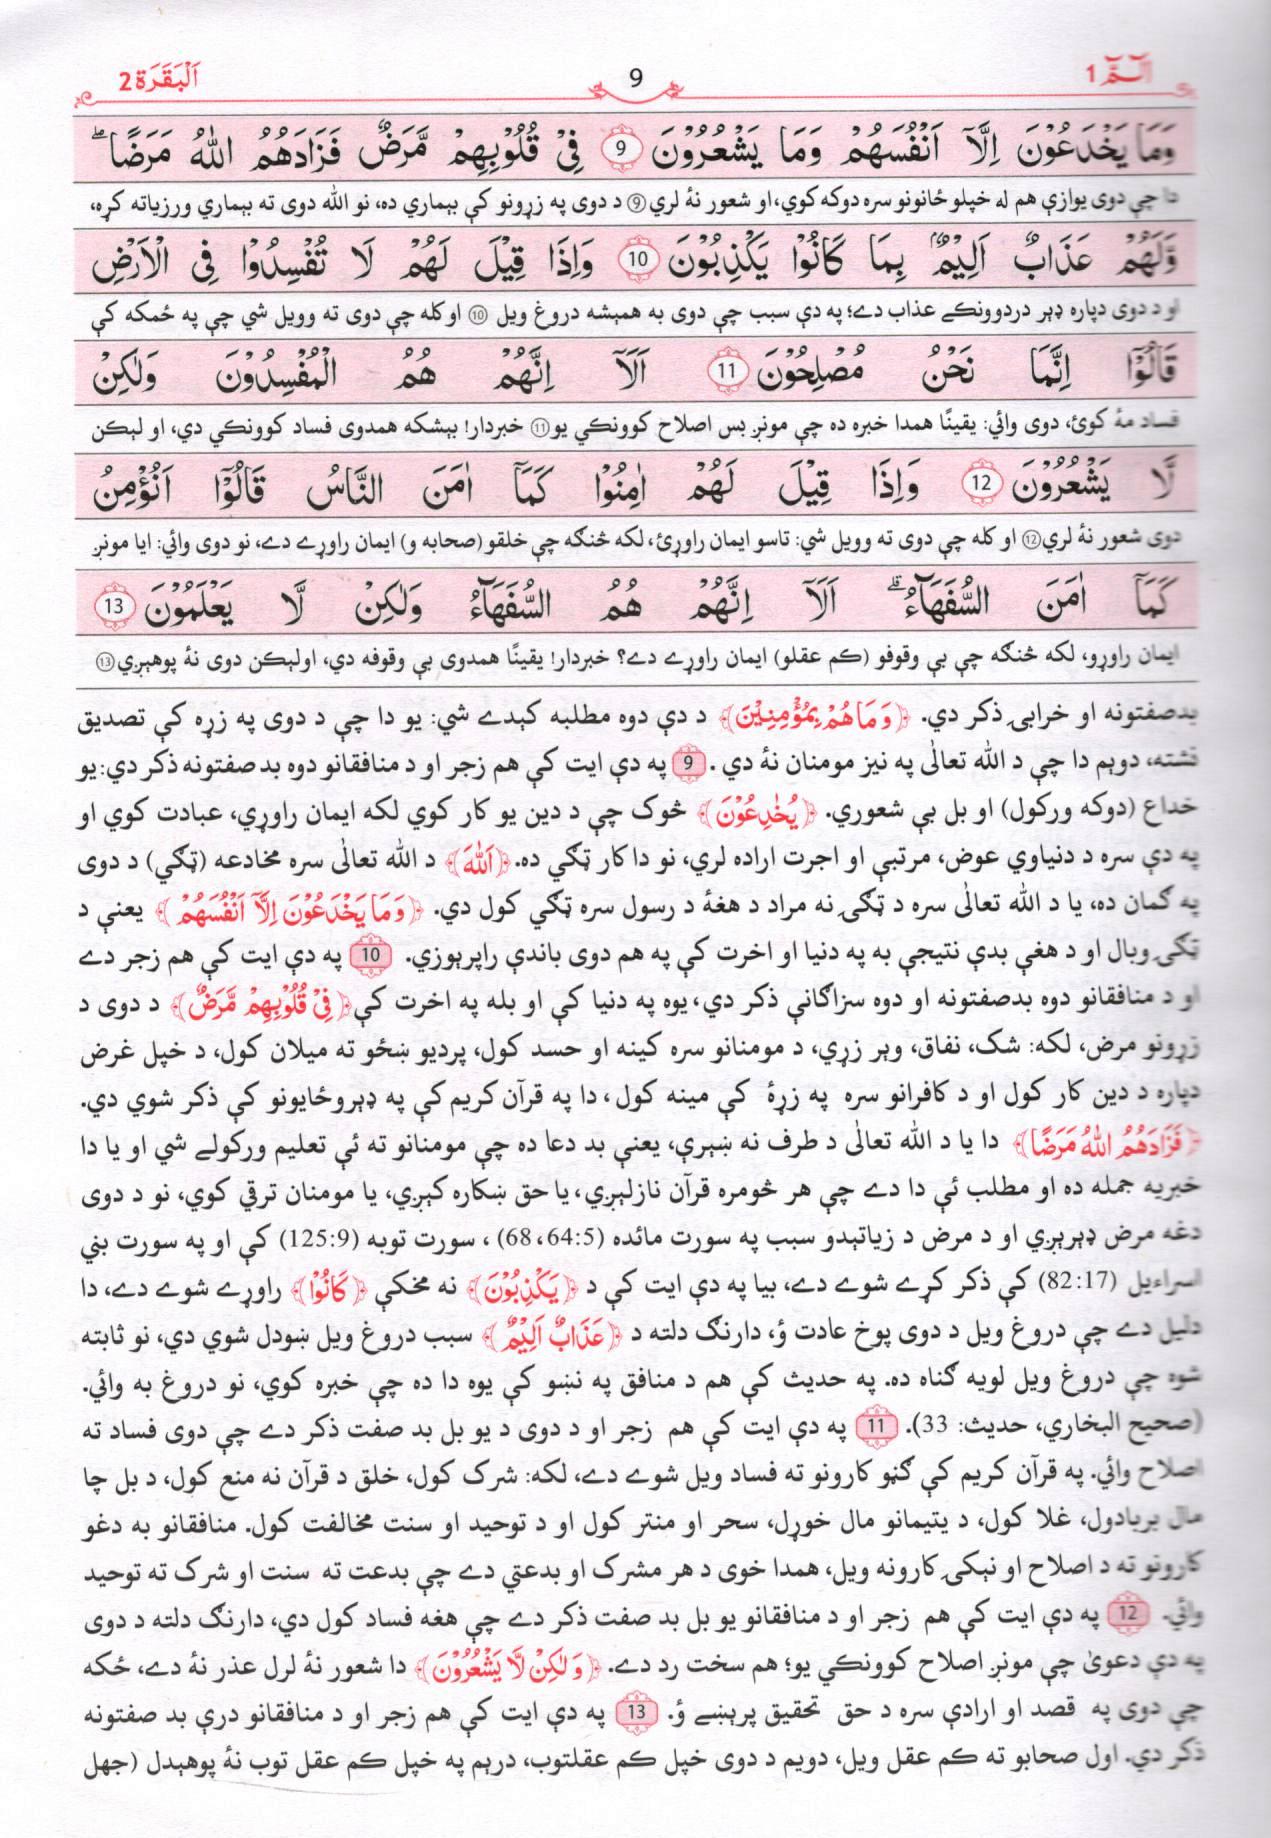 الٓمّٓ 1
9
اَلْبَقَرَة 2
وَمَا يَخْدَعُوْنَ اِلَّآ اَنْفُسَهُمْ وَمَا يَشْعُرُوْنَ 9 فِيْ قُلُوْبِهِمْ مَّرَضٌ فَزَادَهُمُ اللّٰهُ مَرَضًا ۖ
دا چې دوی يوازې هم له خپلو ځانونو سره دوکه کوي، او شعور نۀ لري ⑨ د دوی په زړونو کې بېماري ده، نو الله دوی ته بېماري ورزياته کړه،
وَّلَهُمْ عَذَابٌ اَلِيْمٌۢ بِمَا كَانُوْا يَكْذِبُوْنَ 10 وَاِذَا قِيْلَ لَهُمْ لَا تُفْسِدُوْا فِي الْاَرْضِ
او د دوی دپاره ډېر دردوونکے عذاب دے؛ په دې سبب چې دوی به همېشه دروغ ويل ⑩ او کله چې دوی ته وويل شي چې په ځمکه کې
قَالُوْٓا اِنَّمَا نَحْنُ مُصْلِحُوْنَ 11 اَلَآ اِنَّهُمْ هُمُ الْمُفْسِدُوْنَ وَلٰكِنْ
فساد مۀ کوئ، دوی وائي: يقينًا همدا خبره ده چې مونږ بس اصلاح کوونکي يو ⑪ خبردار! بېشکه همدوی فساد کوونکي دي، او لېکن
لَّا يَشْعُرُوْنَ 12 وَاِذَا قِيْلَ لَهُمْ اٰمِنُوْا كَمَآ اٰمَنَ النَّاسُ قَالُوْٓا اَنُؤْمِنُ
دوی شعور نۀ لري ⑫ او کله چې دوی ته وويل شي: تاسو ايمان راوړئ، لکه څنګه چې خلقو (صحابه و) ايمان راوړے دے، نو دوی وائي: ايا مونږ
كَمَآ اٰمَنَ السُّفَهَآءُ ۗ اَلَآ اِنَّهُمْ هُمُ السُّفَهَآءُ وَلٰكِنْ لَّا يَعْلَمُوْنَ 13
ايمان راوړو، لکه څنګه چې بې وقوفو (کم عقلو) ايمان راوړے دے؟ خبردار! يقينًا همدوی بې وقوفه دي، اولېکن دوی نۀ پوهېږي ⑬
بدصفتونه او خرابۍ ذکر دي. ﴿وَمَا هُمْ بِمُؤْمِنِيْنَ﴾ د دې دوه مطلبه کېدے شي: يو دا چې د دوی په زړه کې تصديق
نشته، دوېم دا چې د الله تعالٰی په نيز مومنان نۀ دي. 9 په دې ايت کې هم زجر او د منافقانو دوه بد صفتونه ذکر دي: يو
خداع (دوکه ورکول) او بل بې شعوري. ﴿يُخٰدِعُوْنَ﴾ څوک چې د دين يو کار کوي لکه ايمان راوړي، عبادت کوي او
په دې سره د دنياوي عوض، مرتبې او اجرت اراده لري، نو دا کار ټګي ده. ﴿اَللّٰهَ﴾ د الله تعالٰی سره مخادعه (ټګي) د دوی
په ګمان ده، يا د الله تعالٰی سره د ټګۍ نه مراد د هغۀ د رسول سره ټګي کول دي. ﴿وَمَا يَخْدَعُوْنَ اِلَّآ اَنْفُسَهُمْ﴾ يعنې د
ټګۍ وبال او د هغې بدې نتيجې به په دنيا او اخرت کې په هم دوی باندې راپرېوزي. 10 په دې ايت کې هم زجر دے
او د منافقانو دوه بدصفتونه او دوه سزاګانې ذکر دي، يوه په دنيا کې او بله په اخرت کې ﴿فِيْ قُلُوْبِهِمْ مَّرَضٌ﴾ د دوی د
زړونو مرض، لکه: شک، نفاق، وېر زړي، د مومنانو سره کينه او حسد کول، پرديو ښځو ته ميلان کول، د خپل غرض
دپاره د دين کار کول او د کافرانو سره په زړۀ کې مينه کول، دا په قرآن کريم کې په ډېروځايونو کې ذکر شوي دي.
﴿فَزَادَهُمُ اللّٰهُ مَرَضًا﴾ دا يا د الله تعالٰی د طرف نه ښېرې، يعنې بد دعا ده چې مومنانو ته ئې تعليم ورکولے شي او يا دا
خبريه جمله ده او مطلب ئې دا دے چې هر څومره قرآن نازلېږي، يا حق ښکاره کېږي، يا مومنان ترقي کوي، نو د دوی
دغه مرض ډېرېږي او د مرض د زياتېدو سبب په سورت مائده (68،64:5)، سورت توبه (125:9) کې او په سورت بني
اسراءيل (82:17) کې ذکر کړے شوے دے، بيا په دې ايت کې د ﴿يَكْذِبُوْنَ﴾ نه مخکې ﴿كَانُوْا﴾ راوړے شوے دے، دا
دليل دے چې دروغ ويل د دوی پوخ عادت ؤ، دارنګ دلته د ﴿عَذَابٌ اَلِيْمٌ﴾ سبب دروغ ويل ښودل شوي دي، نو ثابته
شوه چې دروغ ويل لويه ګناه ده. په حديث کې هم د منافق په نښو کې يوه دا ده چې خبره کوي، نو دروغ به وائي.
(صحيح البخاري، حديث: 33). 11 په دې ايت کې هم زجر او د دوی د يو بل بد صفت ذکر دے چې دوی فساد ته
اصلاح وائي. په قرآن کريم کې ګڼو کارونو ته فساد ويل شوے دے، لکه: شرک کول، خلق د قرآن نه منع کول، د بل چا
مال بربادول، غلا کول، د يتيمانو مال خوړل، سحر او منتر کول او د توحيد او سنت مخالفت کول. منافقانو به دغو
کارونو ته د اصلاح او نېکۍ کارونه ويل، همدا خوی د هر مشرک او بدعتي دے چې بدعت ته سنت او شرک ته توحيد
وائي. 12 په دې ايت کې هم زجر او د منافقانو يو بل بد صفت ذکر دے چې هغه فساد کول دي، دارنګ دلته د دوی
په دې دعوٰی چې مونږ اصلاح کوونکي يو؛ هم سخت رد دے. ﴿وَلٰكِنْ لَّا يَشْعُرُوْنَ﴾ دا شعور نۀ لرل عذر نۀ دے، ځکه
چې دوی په قصد او ارادې سره د حق تحقيق پرېښے ؤ. 13 په دې ايت کې هم زجر او د منافقانو درې بد صفتونه
ذکر دي. اول صحابو ته کم عقل ويل، دويم د دوی خپل کم عقلتوب، درېم په خپل کم عقل توب نۀ پوهېدل (جهل